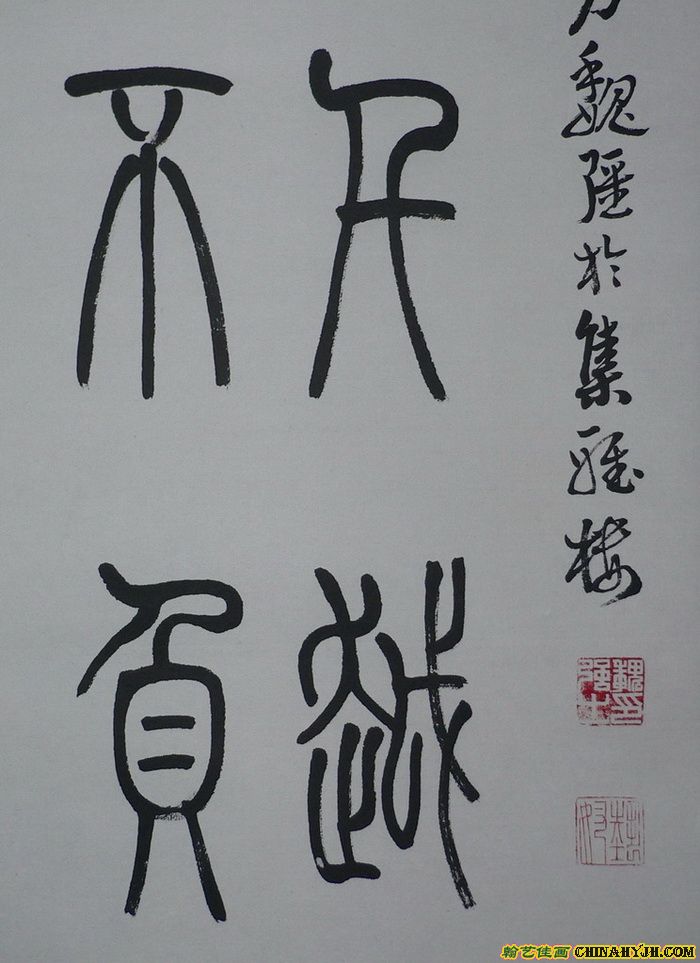 千越
不負
魏强於集雅樓
翰艺佳画 CHINAHYJH.COM